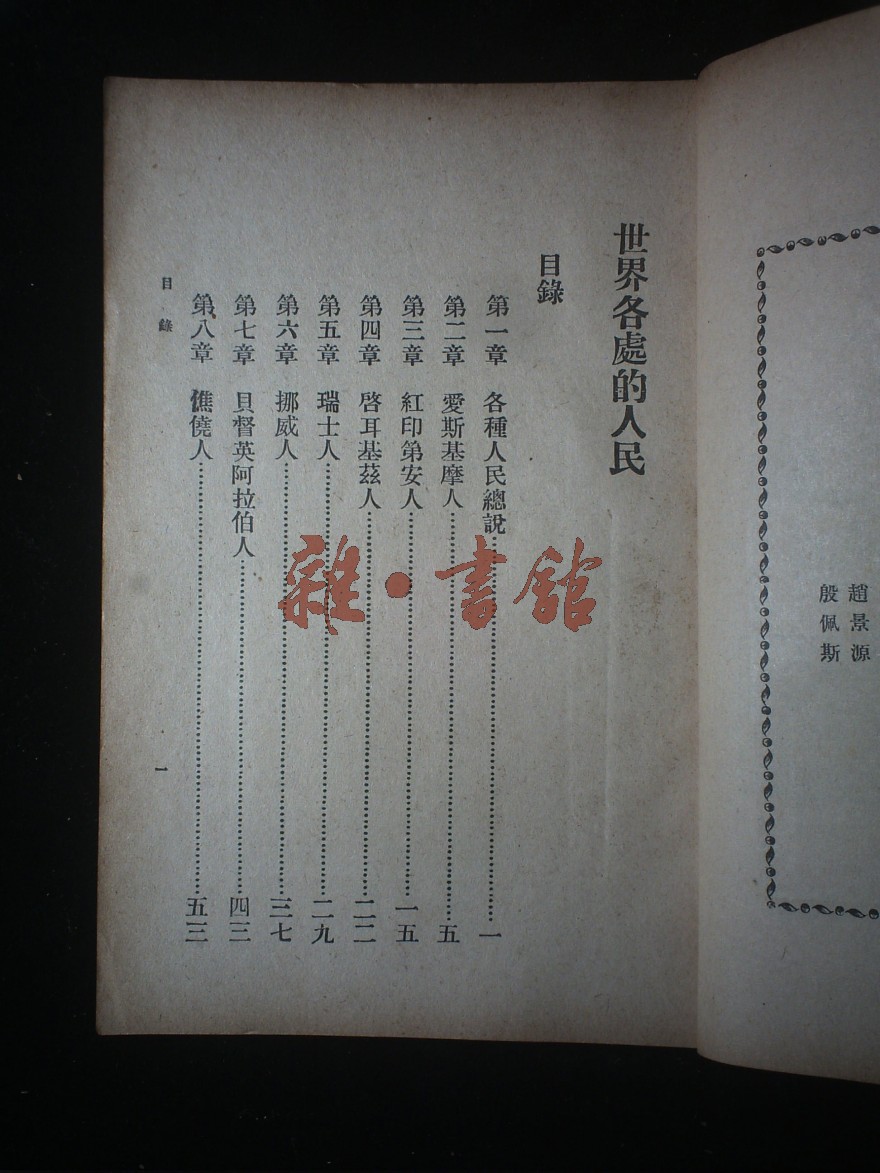 趙景源
殷佩斯
世界各處的人民
目錄
第一章 各種人民總說……一
第二章 愛斯基摩人……五
第三章 紅印第安人……一五
第四章 啓耳基茲人……二二
第五章 瑞士人……二九
第六章 挪威人……三七
第七章 貝督英阿拉伯人……四三
第八章 僬僥人……五三
目錄
一
雜·書館